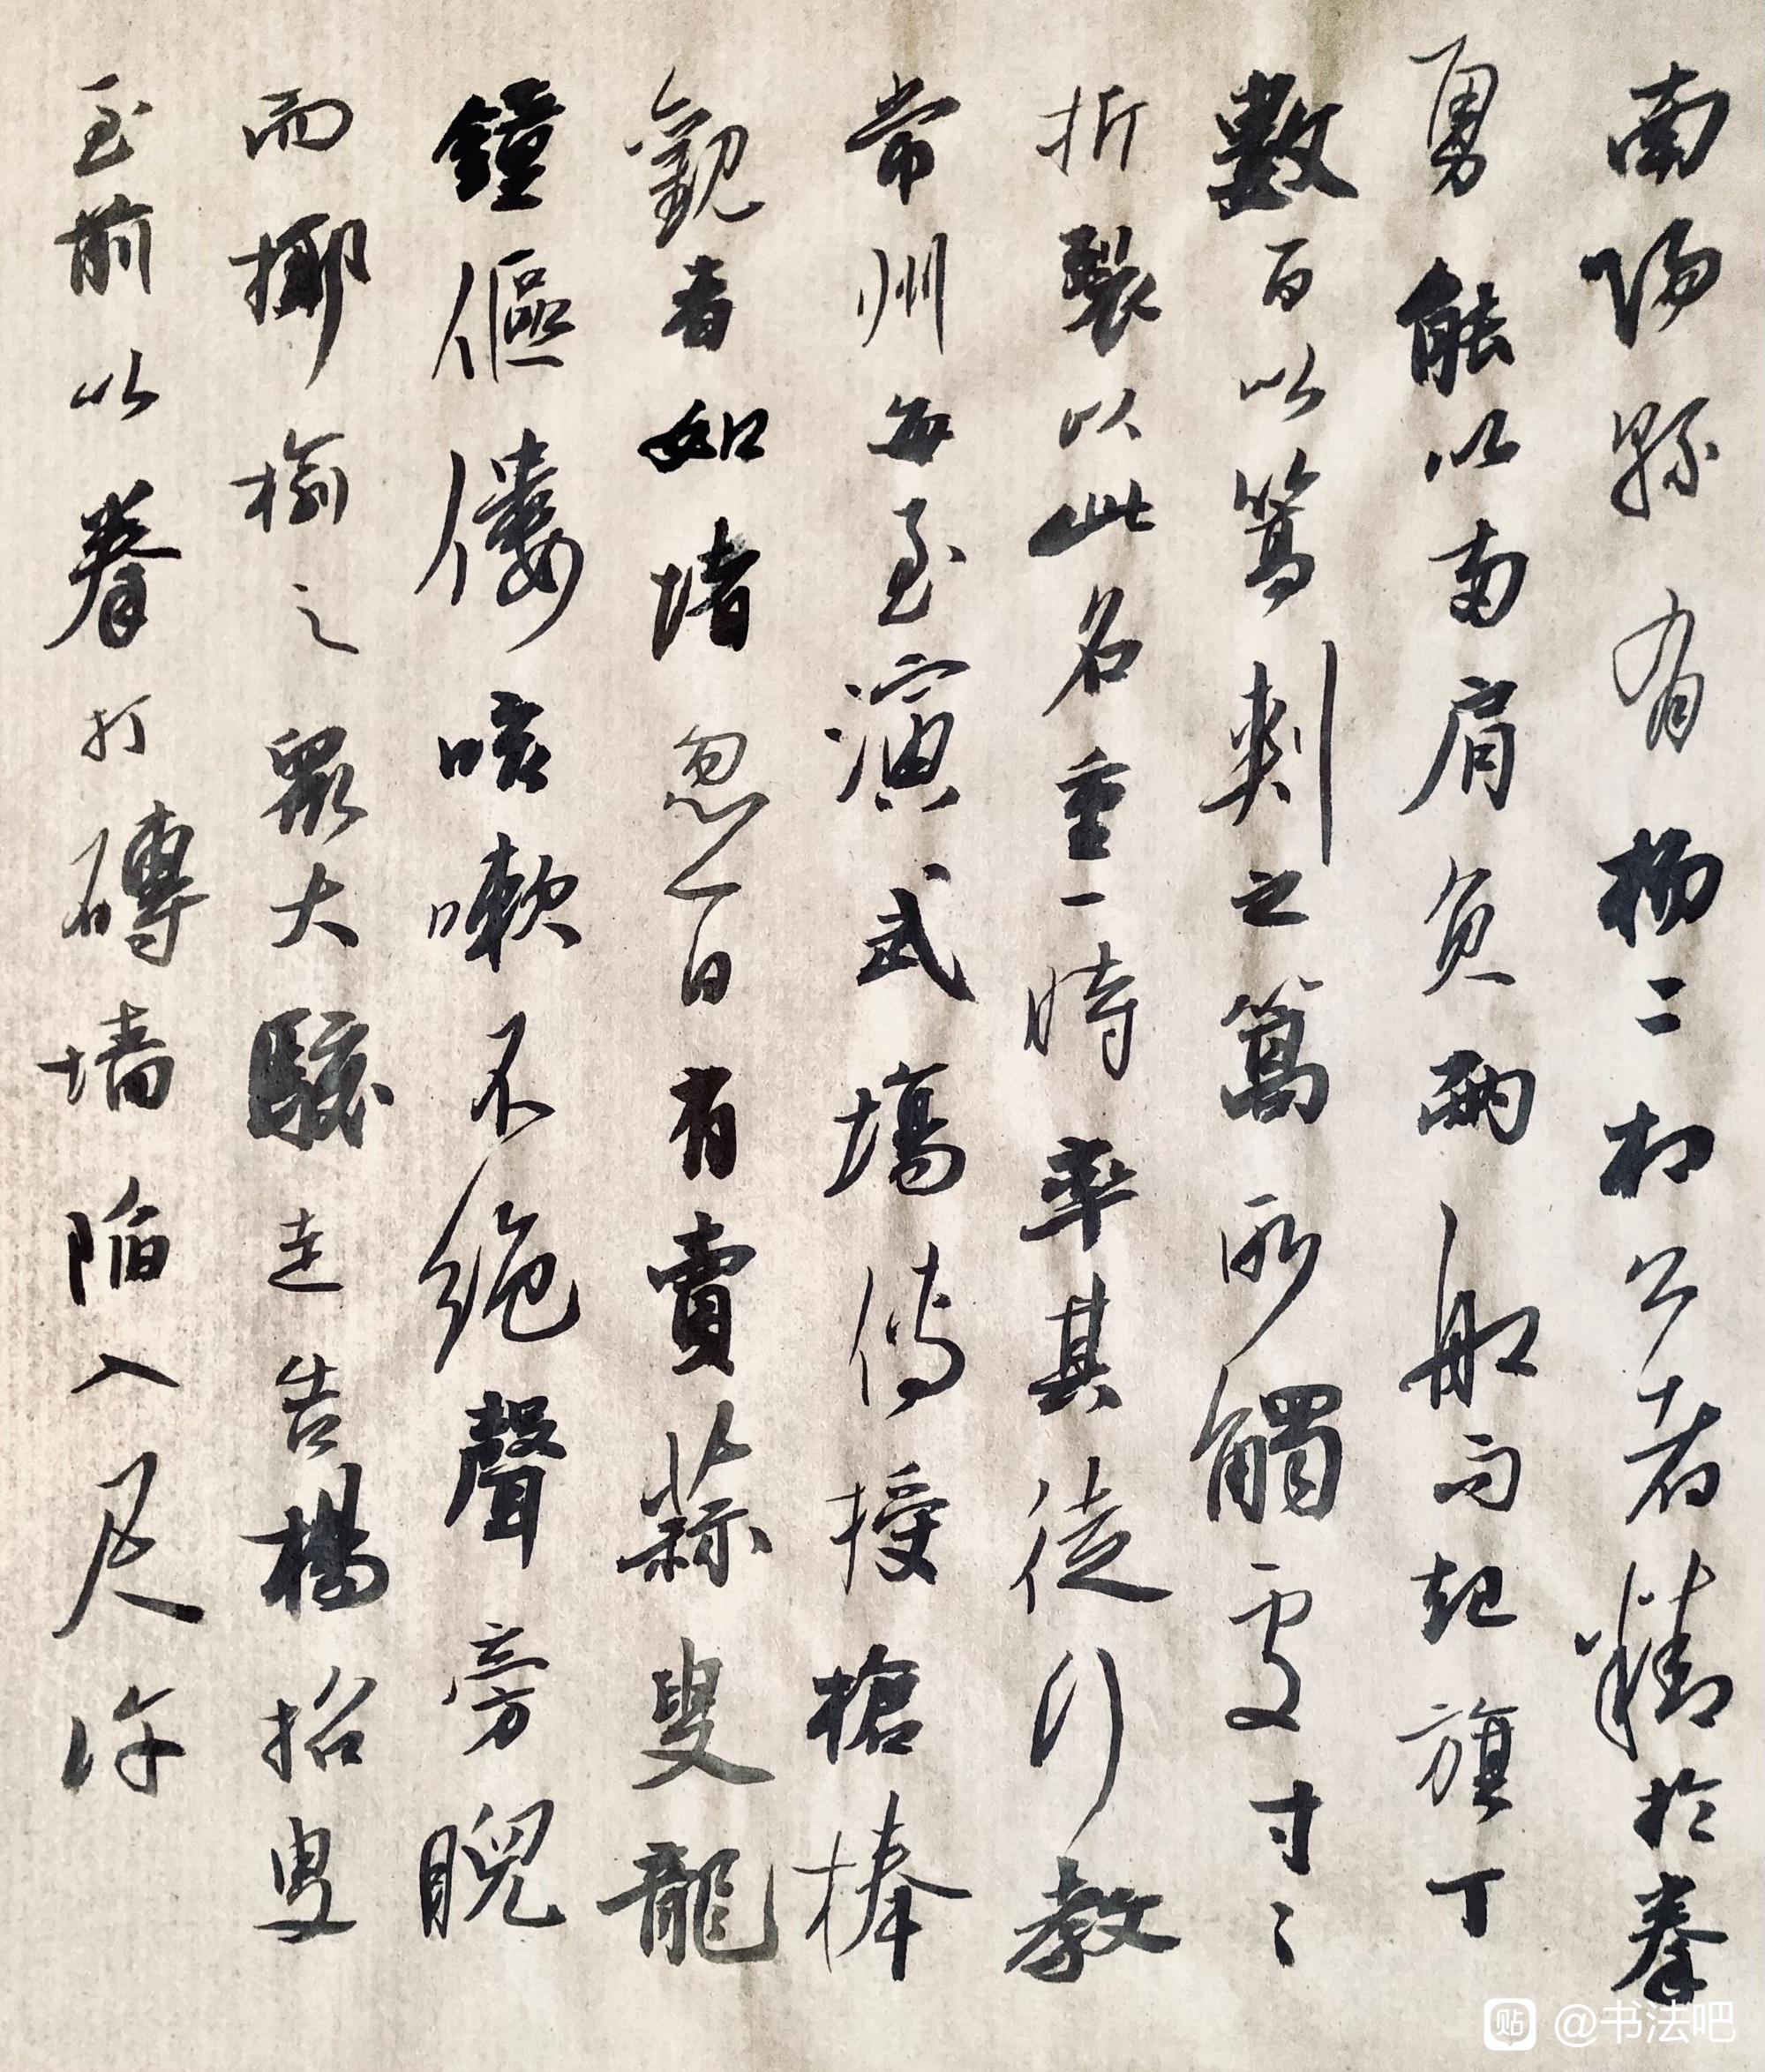 南陽縣有楊二相公者精於拳
勇能以兩肩負兩船而起旗丁
數百以篙刺之篙所觸處寸々
折裂以此名重一時率其徒行教
常州每至演武場傳授槍棒
觀者如堵忽一日有賣蒜叟龍
鐘傴僂咳嗽不絕聲旁睨
而揶揄之眾大駭走告楊招叟
至前以拳打磚墙陷入尺許
貼 @书法吧